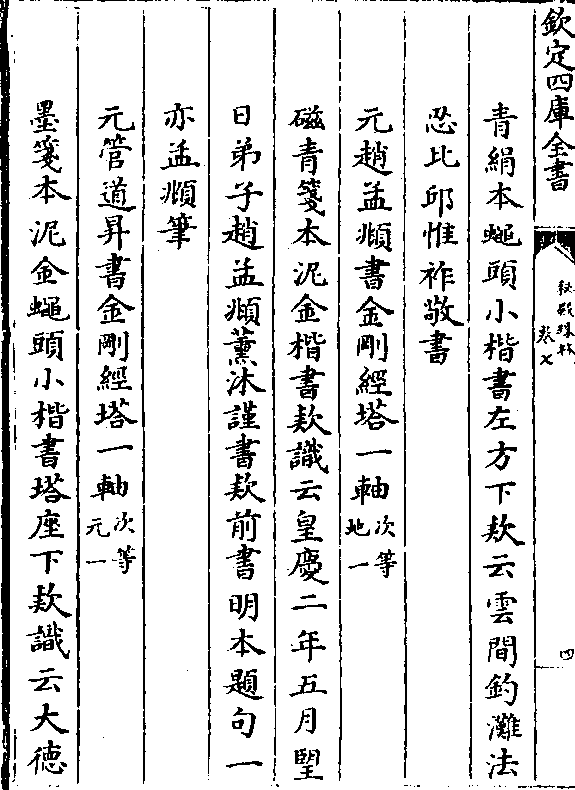 欽定四庫全書
秘殿珠林
卷七
四
青絹本蠅頭小楷書左方下欵云雲間釣灘法
忍比邱惟祚敬書
元趙孟頫書金剛經塔一軸次等地一
磁青箋本泥金楷書欵識云皇慶二年五月朢
日弟子趙孟頫薰沐謹書欵前書明本題句一
亦孟頫筆
元管道昇書金剛經塔一軸次等元一
墨箋本泥金蠅頭小楷書塔座下欵識云大德